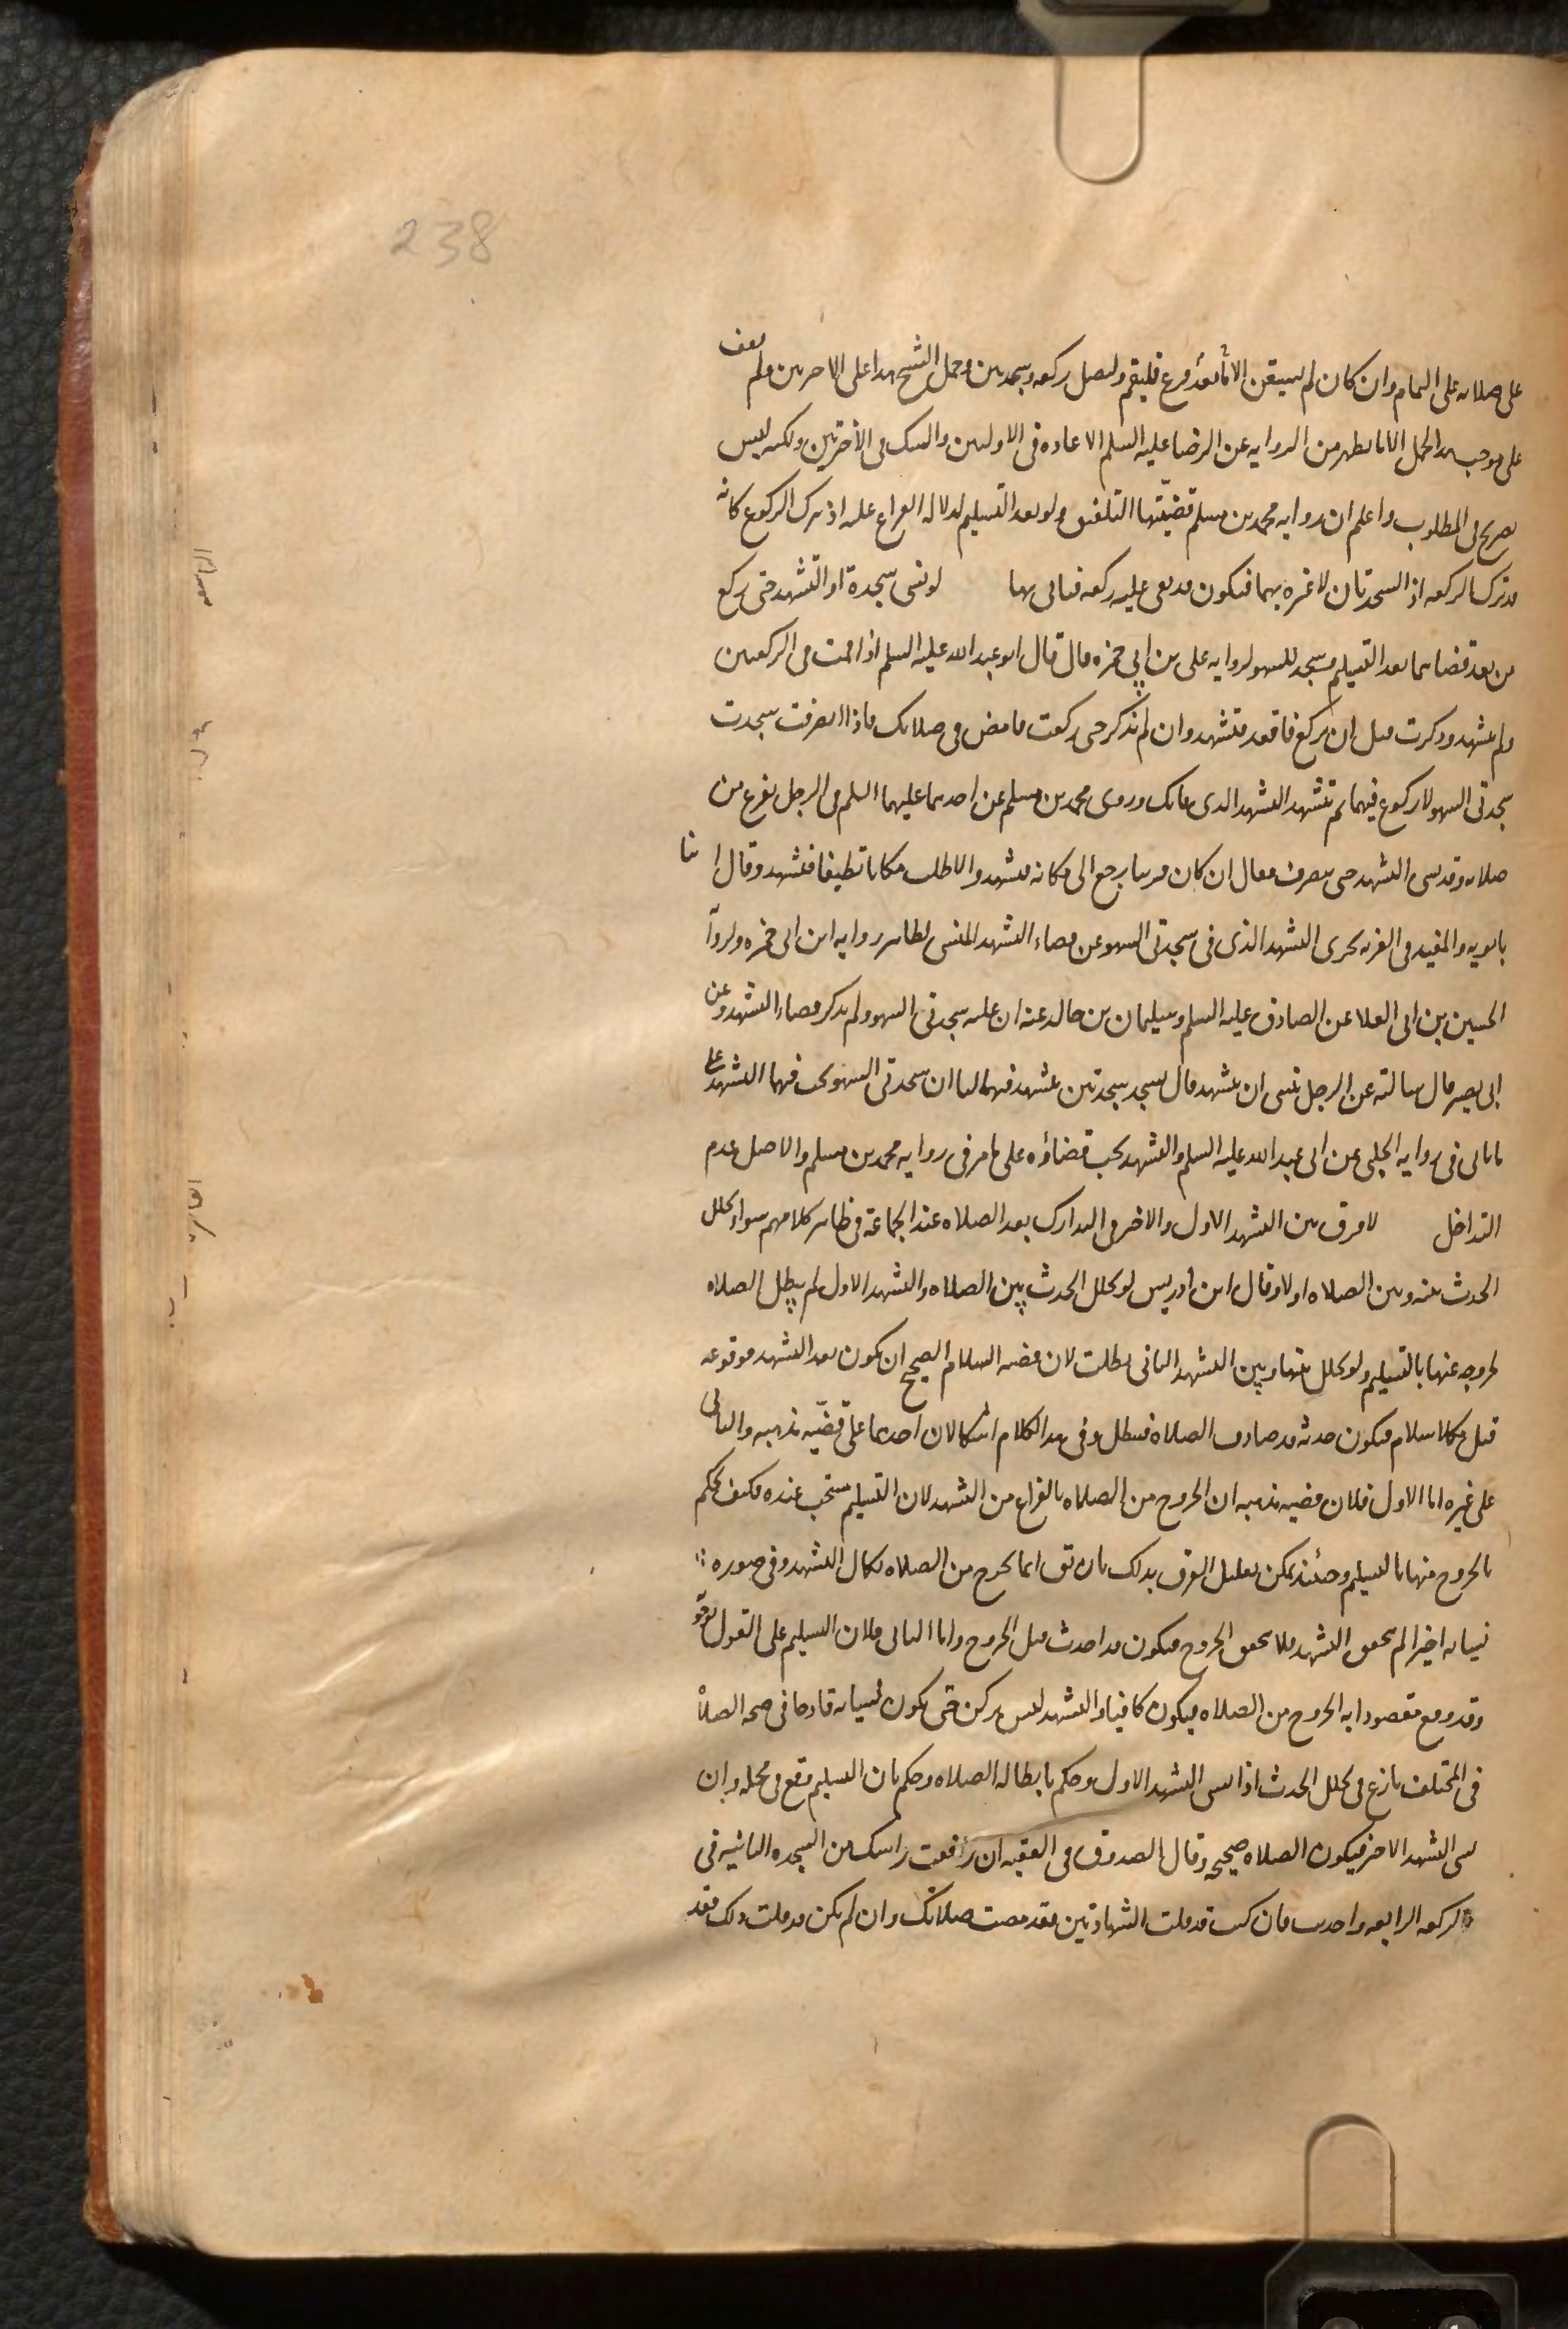 238
على صلاته على التمام وان كان لم يستيقن الا بعد ما فرغ فليقم وليصل ركعه وسجدتين وحمل الشيخ هذا على الاخرتين ولم نقف
على موجب هذا الحمل الا ما يظهر من الروايه عن الرضا عليه السلم الاعاده في الاولتين والشك في الأخرتين ولكنه ليس
بصريح في المطلوب واعلم ان روايه محمد بن مسلم قضيّتها التلفيق ولو بعد التسليم لدلاله الفراغ عليه اذ ترك الركوع كانه
قد ترك الركعه اذ السجدتان لا عبره بهما فتكون قد بقي عليه ركعه فياتي بها لو نسي سجدة او التشهد حتى ركع
من بعد قضاهما بعد التسليم وسجد للسهو لروايه على بن ابي حمزه قال قال ابو عبد الله عليه السلم اذا قمت في الركعتين
ولم تتشهد وذكرت قبل ان تركع فاقعد فتشهد وان لم تذكر حتى ركعت فامض في صلاتك فاذا انصرفت سجدت
سجدتى السهو لا ركوع فيهما ثم تتشهد التشهد الذى فاتك وروى محمد بن مسلم عن احدهما عليهما السلم في الرجل يفرغ من
صلاته وقد نسى التشهد حتى ينصرف فقال ان كان قريبا رجع الى مكانه فتشهد والا طلب مكانا نظيفا فتشهد وقال ا بنا
بابويه والمفيد في الغريه يجزى التشهد الذى في سجدتى السهو عن قضاء التشهد المنسي لظاهر روايه ابن ابي حمزه ولروآ
الحسين بن ابى العلا عن الصادق عليه السلم وسليمان بن خالد عنه ان عليه سجدتى السهو ولم يذكر قضاء التشهد وعن
ابى بصير قال سالته عن الرجل نسى ان يتشهد قال يسجد سجدتين يتشهد فيهما لنا ان سجدتى السهو يجب فيهما التشهد على
ما ياتى في روايه الحلبي عن ابى عبد الله عليه السلم والتشهد يجب قضاؤه على ما مر في روايه محمد بن مسلم والاصل عدم
التداخل لا فرق بين التشهد الاول والاخر في التدارك بعد الصلاه عند الجماعة في ظاهر كلامهم سواء تخلل
الحدث بينه وبين الصلاه اولا وقال ابن ادريس لو تخلل الحدث بين الصلاه والتشهد الاول لم يبطل الصلاه
لخروجه عنها بالتسليم ولو تخلل بينها وبين التشهد الثاني بطلت لان قضيه السلام الصحيح ان يكون بعد التشهد فوقوعه
قبل كلا سلام فيكون حدثه قد صادف الصلاه فيبطل وفي هذا الكلام اشكالان احدهما على قضيّه مذهبه والثاني
على غيره اما الاول فلان قضيه مذهبه ان الخروج من الصلاه بالفراغ من التشهد لان التسليم مستحب عنده فكيف يحكم
بالخروج منها بالتسليم وحينئذ يمكن تعليل الفرق بذلك بان تق انما يخرج من الصلاه بكمال التشهد وفي صوره
نسيانه اخيرا لم يتحقق التشهد فلا يتحقق الخروج فيكون قد احدث قبل الخروج واما الثانى فلان التسليم على القول بوجو
وقد وقع مقصودا به الخروج من الصلاه فيكون كافيا والتشهد ليس بركن حتى يكون نسيانه قادحا في صحه الصلاة
في المختلف نازع في تخلل الحدث اذا نسى التشهد الاول وحكم بابطاله الصلاه وحكم بان التسليم يقع في محله وان
نسى التشهد الاخر فيكون الصلاه صحيحه وقال الصدوق في الفقيه ان رفعت راسك من السجده الثانيه في
الركعه الرابعه واحدثت فان كنت قد قلت الشهادتين فقد مضت صلاتك وان لم تكن قد قلت ذلك فقد